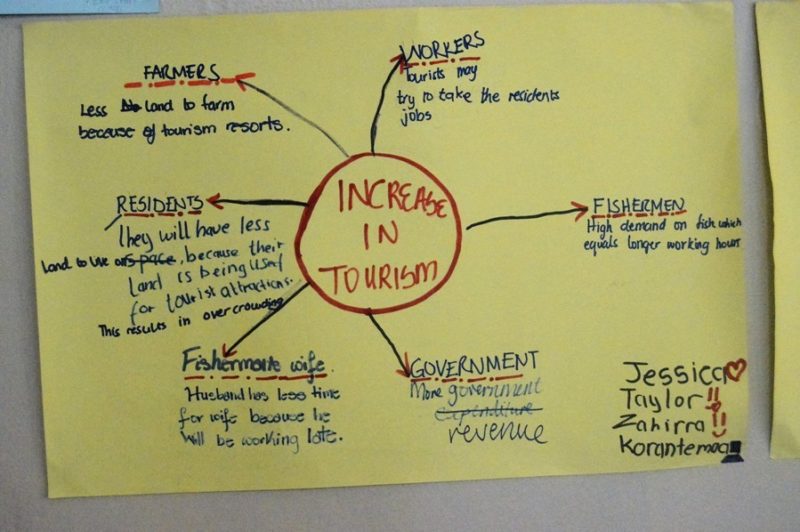 FARMERS
Less land to farm
because of tourism resorts.
WORKERS
Tourists may
try to take the residents
jobs
INCREASE
IN
TOURISM
RESIDENTS
They will have less
land to use or space, because their
land is being used
for tourist attractions.
This results in overcrowding
FISHERMEN
High demand on fish which
equals longer working hours
Fishermans wife
Husband has less time
for wife because he
will be working late.
GOVERNMENT
More government
expenditure
revenue
Jessica
Taylor!!
Zahirra!!
Korantemaa